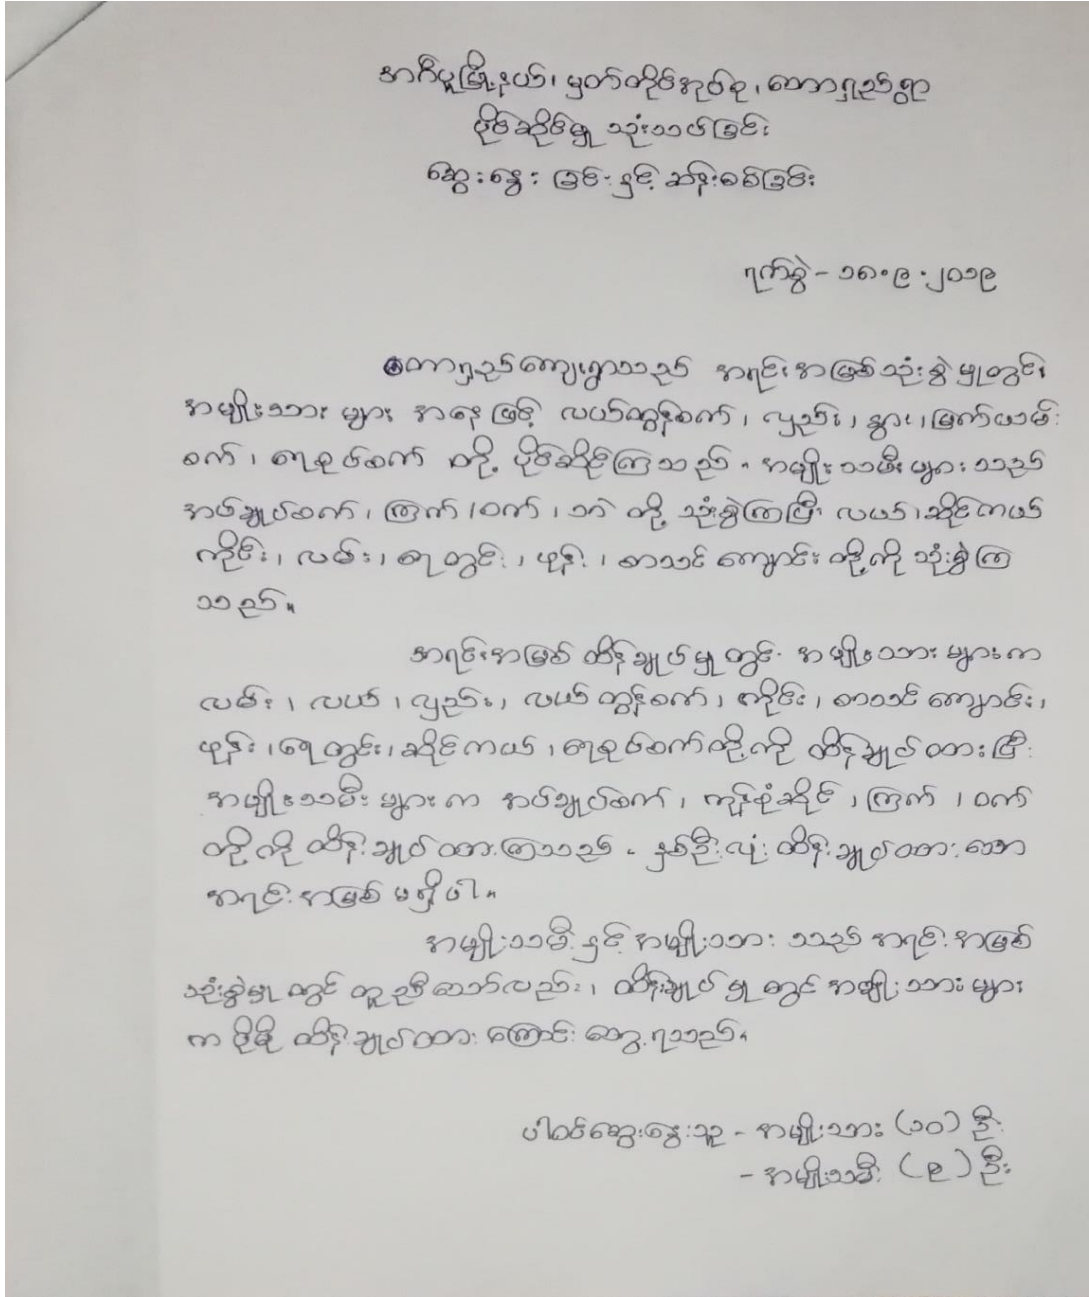 အင်္ဂပူမြို့နယ်၊ မှတ်တိုင်အုပ်စု၊ တောရှည်ရွာ
ပိုင်ဆိုင်မှု သုံးသပ်ခြင်း
ဆွေးနွေးခြင်းနှင့် ဆန်းစစ်ခြင်း
ရက်စွဲ - ၁၈.၉.၂၀၁၉
တောရှည်ကျေးရွာသည် အရင်းအမြစ်သုံးစွဲမှုတွင်
အမျိုးသားများ အနေဖြင့် လယ်ထွန်စက်၊ လှည်း၊ နွား၊ မြက်ယမ်း
စက်၊ ရေစုပ်စက် တို့ ပိုင်ဆိုင်ကြသည်။ အမျိုးသမီးများသည်
အပ်ချုပ်စက်၊ ကြက်၊ ဝက်၊ ဘဲ တို့ သုံးစွဲကြပြီး လယ်၊ ဆိုင်ကယ်
ကိုင်း၊ လမ်း၊ ရေတွင်း၊ ဖုန်း၊ စာသင်ကျောင်း တို့ကို သုံးစွဲကြ
သည်။
အရင်းအမြစ် ထိန်းချုပ်မှုတွင် အမျိုးသားများက
လမ်း၊ လယ်၊ လှည်း၊ လယ်ထွန်စက်၊ ကိုင်း၊ စာသင်ကျောင်း၊
ဖုန်း၊ ရေတွင်း၊ ဆိုင်ကယ်၊ ရေစုပ်စက်တို့ကို ထိန်းချုပ်ထားပြီး
အမျိုးသမီးများက အပ်ချုပ်စက်၊ ကုန်စုံဆိုင်၊ ကြက်၊ ဝက်
တို့ကို ထိန်းချုပ်ထားကြသည်။ နှစ်ဦးလုံး ထိန်းချုပ်ထားသော
အရင်းအမြစ် မရှိပါ။
အမျိုးသမီးနှင့် အမျိုးသား သည် အရင်းအမြစ်
သုံးစွဲမှုတွင် တူညီသော်လည်း၊ ထိန်းချုပ်မှုတွင် အမျိုးသားများ
က ပိုမို ထိန်းချုပ်ထားကြောင်း တွေ့ရသည်။
ပါဝင်ဆွေးနွေးသူ - အမျိုးသား (၁၀) ဦး
- အမျိုးသမီး (၉) ဦး